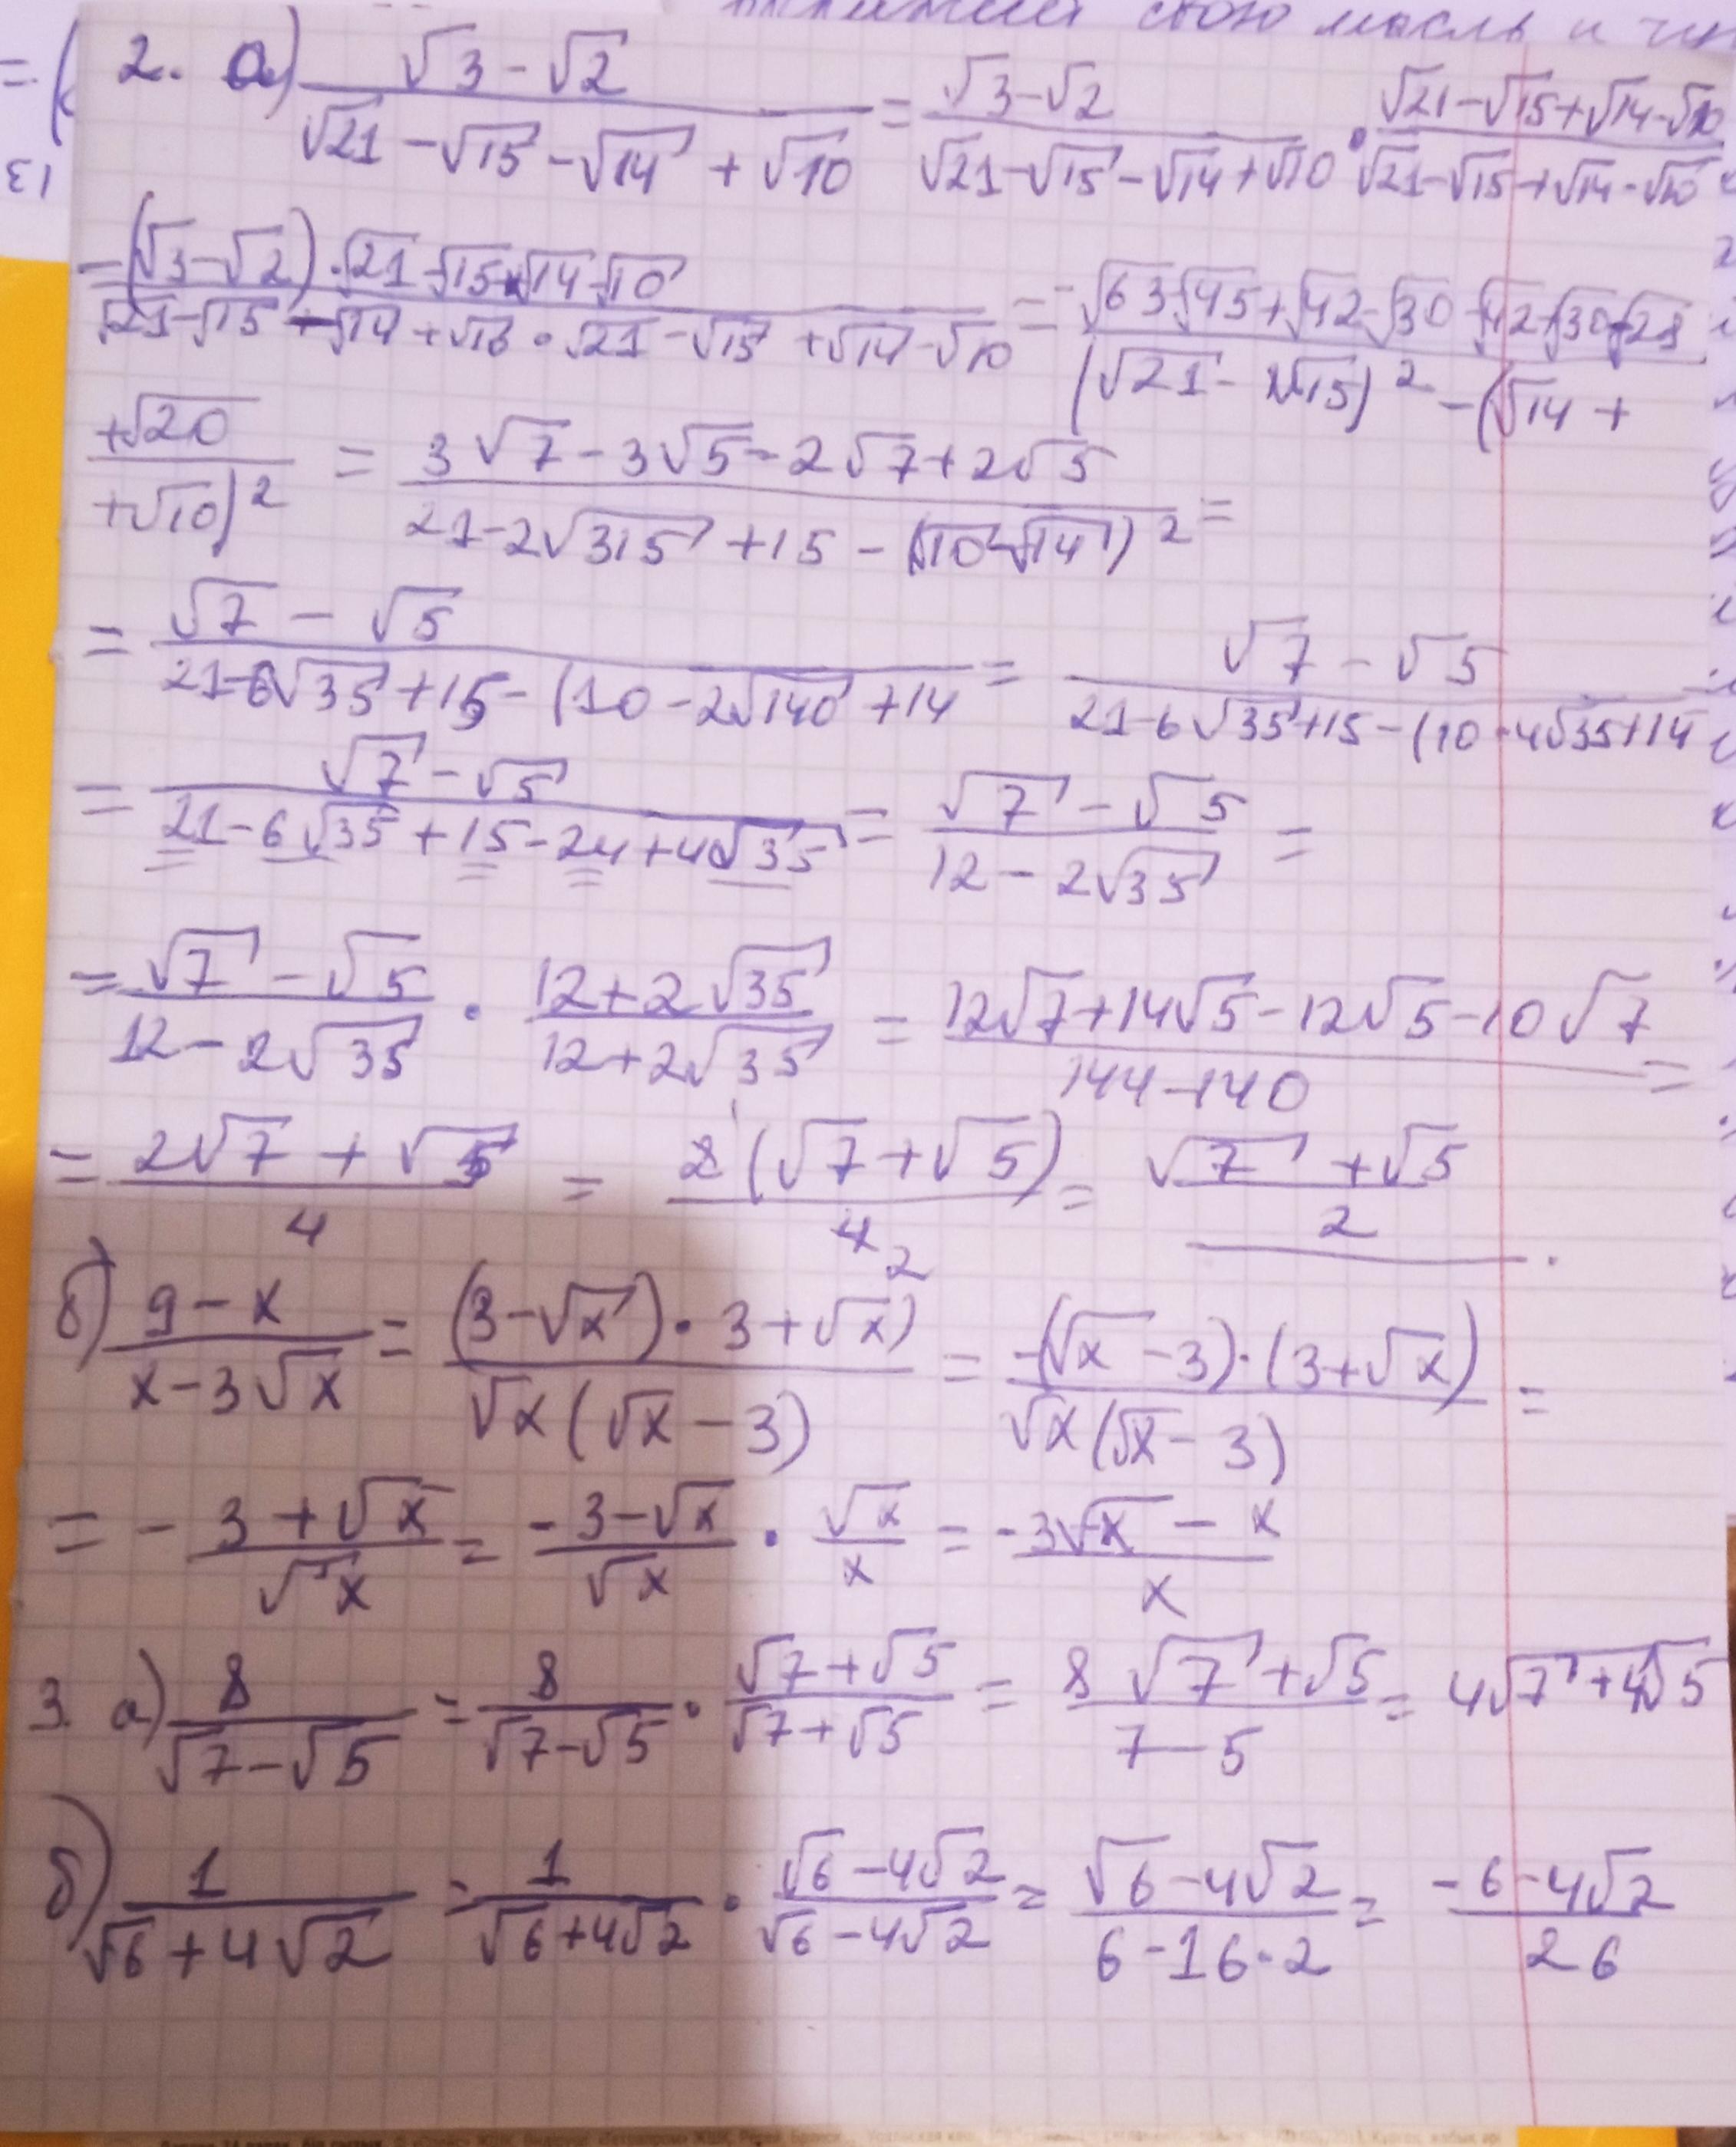 свою мысль и
2. а) (√3-√2)/(√21-√15-√14+√10) = (√3-√2)/(√21-√15-√14+√10) · (√21-√15+√14-√10)/(√21-√15+√14-√10)
= ((√3-√2)·√21-√15+√14-√10)/(√21-√15-√14+√10·√21-√15+√14-√10) = (√63-√45+√42-√30-√42+√30-√28
(√21-√15)²-(√14+
+√20/+√10)² = (3√7-3√5-2√7+2√5)/(21-2√315+15-(√10-√14)²) =
= (√7-√5)/(21-6√35+15-(10-2√140+14 = (√7-√5)/(21-6√35+15-(10-4√35+14
= (√7-√5)/(21-6√35+15-24+4√35) = (√7-√5)/(12-2√35) =
= (√7-√5)/(12-2√35) · (12+2√35)/(12+2√35) = (12√7+14√5-12√5-10√7)/(144-140) =
= (2√7+√5)/4 = 2(√7+√5)/4 2 = (√7+√5)/2.
б) (9-x)/(x-3√x) = (3-√x)·3+√x)/(√x(√x-3)) = -(√x-3)·(3+√x)/(√x(√x-3)) =
= - (3+√x)/√x = (-3-√x)/√x · √x/x = (-3√x-x)/x
3. а) 8/(√7-√5) = 8/(√7-√5) · (√7+√5)/(√7+√5) = (8 √7+√5)/(7-5) = 4√7+4√5
б) 1/(√6+4√2) = 1/(√6+4√2) · (√6-4√2)/(√6-4√2) = (√6-4√2)/(6-16·2) = (-6-4√2)/26